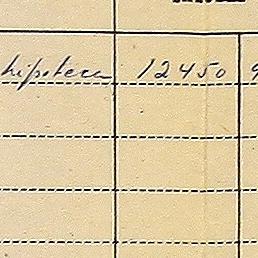 hipoteca 12450